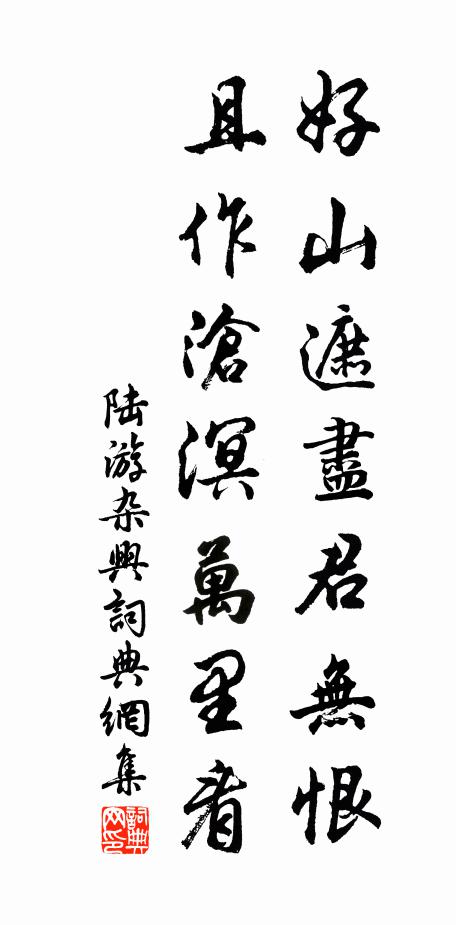 好山遮盡君無恨
且作滄溟萬里看
陸游杂興詞典網集
詞典网印